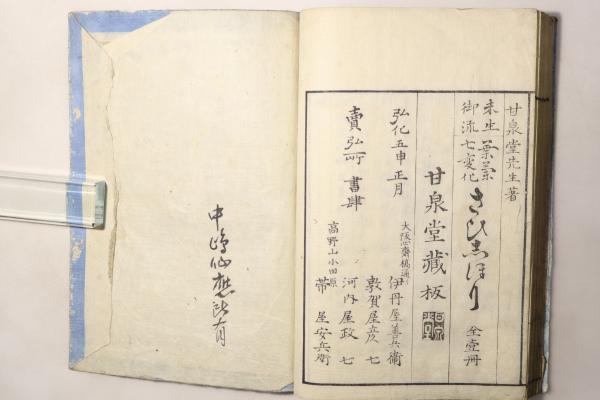 甘泉堂先生著
未生葉蘭
御流七変化
さひしほり
全壹冊
甘泉堂藏板
弘化五申正月
賣弘所 書肆
大阪心齋橋通
伊丹屋善兵衛
敦賀屋彦七
河内屋政七
高野山小田原
帯屋安兵衛
中嶋仙